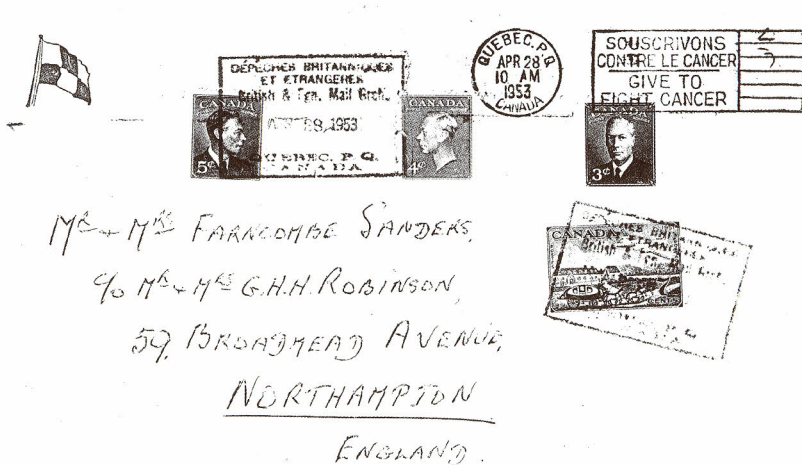 DÉPÊCHES BRITANNIQUES
ET ETRANGERES
British & Fgn. Mail Brch.
28, 1953
QUEBEC, P. Q.
CANADA
QUEBEC, P.Q.
APR 28
10 AM
1953
CANADA
SOUSCRIVONS
CONTRE LE CANCER
GIVE TO
FIGHT CANCER
CANADA
5¢
CANADA
4¢
3¢
CANADA
British & Fgn.
MR + MRS FARNCOMBE SANDERS,
c/o MR + MRS G.H.H. ROBINSON,
59, BROADMEAD AVENUE,
NORTHAMPTON
ENGLAND.